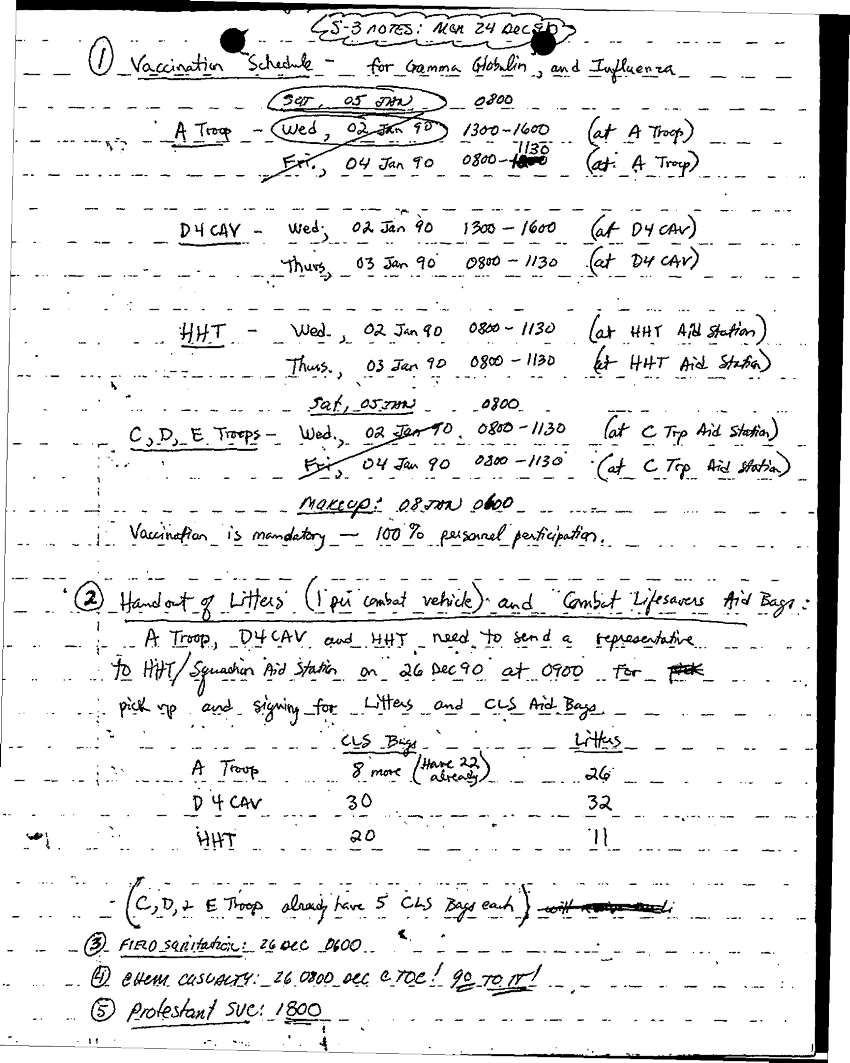 S-3 NOTES: MON 24 DEC 90
① Vaccination Schedule - for Gamma Globulin, and Influenza
SAT, 05 JAN 0800
A Troop - Wed, 02 Jan 90 1300-1600 (at A Troop)
1130
Fri., 04 Jan 90 0800- (at A Troop)
D4CAV - Wed, 02 Jan 90 1300-1600 (at D4 CAV)
Thurs, 03 Jan 90 0800-1130 (at D4 CAV)
HHT - Wed., 02 Jan 90 0800-1130 (at HHT Aid Station)
Thurs., 03 Jan 90 0800-1130 (at HHT Aid Station)
Sat, 05 JAN 0800
C, D, E Troops - Wed., 02 Jan 90. 0800-1130 (at C Trp Aid Station)
Fri, 04 Jan 90 0800-1130 (at C Trp Aid Station)
Makeup: 08 JAN 0600
Vaccination is mandatory — 100% personnel participation.
② Handout of Litters (1 per combat vehicle) and Combat Lifesavers Aid Bags:
A Troop, D4CAV and HHT need to send a representative
to HHT/Squadron Aid Station on 26 Dec 90 at 0900 for
pick up and signing for Litters and CLS Aid Bags
CLS Bags Litters
A Troop 8 more (Have 22 already) 26
D 4 CAV 30 32
HHT 20 11
- (C, D, & E Troop already have 5 CLS Bags each)
③ FIELD sanitation: 26 DEC 0600
④ CHEM CASUALTY: 26 0800 DEC @ TOC! GO TO IT!
⑤ Protestant SVC: 1800